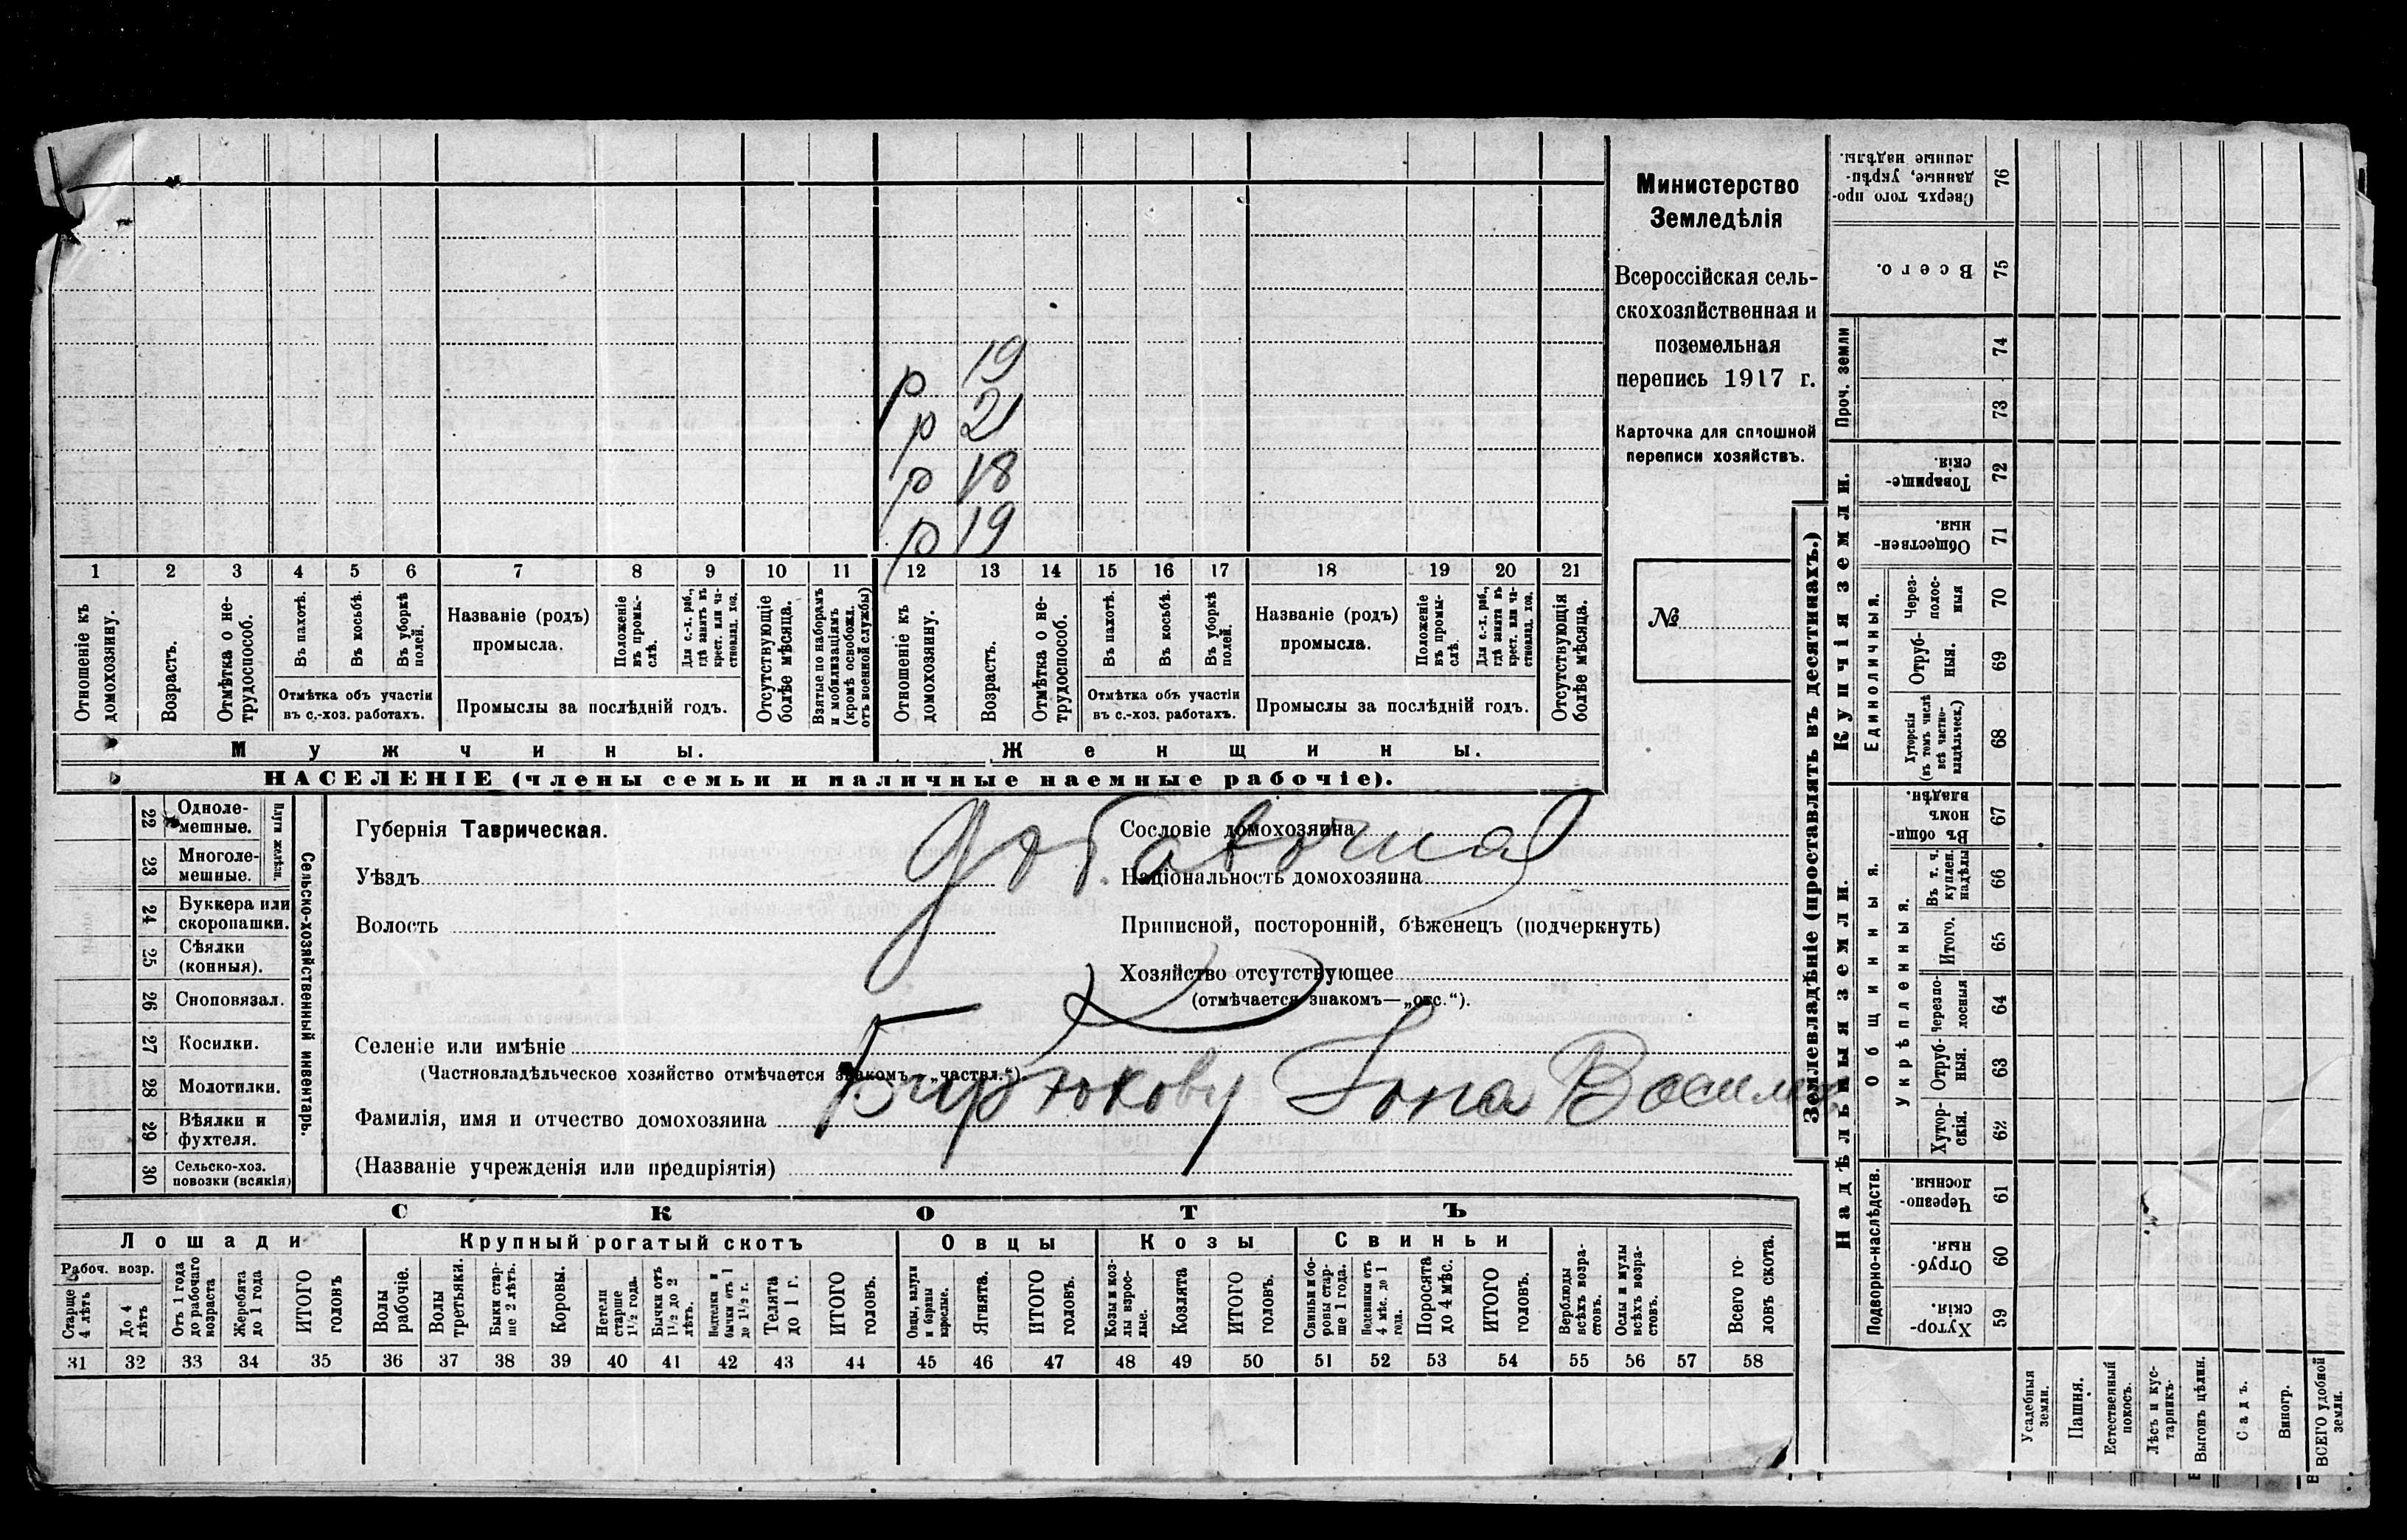 19
р
р 21
р 18
р 19
1 2 3 4 5 6 7 8 9 10 11 12 13 14 15 16 17 18 19 20 21
Отношеніе къ домохозяину.
Возрастъ.
Отмѣтка о не-
трудоспособ.
Въ пахотѣ.
Въ косьбѣ.
Въ уборкѣ
полей.
Отмѣтка объ участіи
въ с.-хоз. работахъ.
Названіе (родъ)
промысла.
Положеніе
въ промы-
слѣ.
Для с.-х. раб.,
гдѣ занятъ въ
крест. или ча-
стновлад. хоз.
Промыслы за послѣдній годъ.
Отсутствующіе
болѣе мѣсяца.
Взятые по наборамъ
и мобилизаціямъ
(кромѣ освобожд.
отъ военной службы)
Отношеніе къ
домохозяину.
Возрастъ.
Отмѣтка о не-
трудоспособ.
Въ пахотѣ.
Въ косьбѣ.
Въ уборкѣ
полей.
Отмѣтка объ участіи
въ с.-хоз. работахъ.
Названіе (родъ)
промысла.
Положеніе
въ промы-
слѣ.
Для с.-х. раб.,
гдѣ занята въ
крест. или ча-
стновлад. хоз.
Промыслы за послѣдній годъ.
Отсутствующія
болѣе мѣсяца.
Мужчины.
Женщины.
НАСЕЛЕНІЕ (члены семьи и наличные наемные рабочіе).
Министерство
Земледѣлія
Всероссійская сель-
скохозяйственная и
поземельная
перепись 1917 г.
Карточка для сплошной
переписи хозяйствъ.
№
22 Одноле-
мешные.
23 Многоле-
мешные.
Плуги желѣзн.
24 Буккера или
скоропашки.
25 Сѣялки
(конныя).
26 Сноповязал.
27 Косилки.
28 Молотилки.
29 Вѣялки и
фухтеля.
30 Сельско-хоз.
повозки (всякія)
Сельско-хозяйственный инвентарь.
Губернія Таврическая.
Уѣздъ
Волость
Добавочная
Сословіе домохозяина
Національность домохозяина
Приписной, посторонній, бѣженецъ (подчеркнуть)
Хозяйство отсутствующее
(отмѣчается знакомъ—„отс.“).
Селеніе или имѣніе
(Частновладѣльческое хозяйство отмѣчается знакомъ—„частвл.“)
Фамилія, имя и отчество домохозяина Бирюкову Іона Васильев
(Названіе учрежденія или предпріятія)
СКОТЪ
Лошади
Крупный рогатый скотъ
Овцы
Козы
Свиньи
Рабоч. возр.
Старше
4 лѣтъ
До 4
лѣтъ
Отъ 1 года
до рабочаго
возраста
Жеребята
до 1 года
ИТОГО
головъ
Волы
рабочіе.
Волы
третьяки.
Быки стар-
ше 2 лѣтъ.
Коровы.
Нетели
старше
1½ года.
Бычки отъ
1½ до 2
лѣтъ.
Подтелки и
бычки отъ 1
до 1½ г.
Телята
до 1 г.
ИТОГО
головъ.
Овцы, валухи
и бараны
взрослые.
Ягнята.
ИТОГО
головъ.
Козы и коз-
лы взрос-
лые.
Козлята
ИТОГО
головъ.
Свиньи и бо-
ровы стар-
ше 1 года.
Подсвинки отъ
4 мѣс. до 1
года.
Поросята
до 4 мѣс.
ИТОГО
головъ.
Верблюды
всѣхъ возра-
стовъ.
Ослы и мулы
всѣхъ возра-
стовъ.
Всего го-
ловъ скота.
31 32 33 34 35 36 37 38 39 40 41 42 43 44 45 46 47 48 49 50 51 52 53 54 55 56 57 58
Землевладѣніе (проставлять въ десятинахъ.)
Сверхъ того про-
данные, укрѣп-
ленные надѣлы.
76
Всего.
75
Проч. земли
74
73
Купчія земли.
Товарище-
скія.
72
Обществен-
ныя.
71
Единоличныя.
Через-
полос-
ныя
70
Отруб-
ныя.
69
Хуторскія
(въ томъ числѣ
всѣ частно-
владѣльческ.)
68
Надѣльныя земли.
Общинныя.
Въ общи-
номъ
владѣн.
67
Укрѣпленныя.
Въ т. ч.
куплен.
надѣлы
66
Итого.
65
Черезпо-
лосныя
64
Отруб-
ныя.
63
Хутор-
скія.
62
Подворно-наслѣдств.
Черезпо-
лосныя.
61
Отруб-
ныя.
60
Хутор-
скія.
59
Усадебныя
земли.
Пашня.
Естественный
покосъ.
Лѣсъ и кус-
тарникъ.
Выгонъ цѣлин.
Садъ.
Виногр.
ВСЕГО удобной
земли.